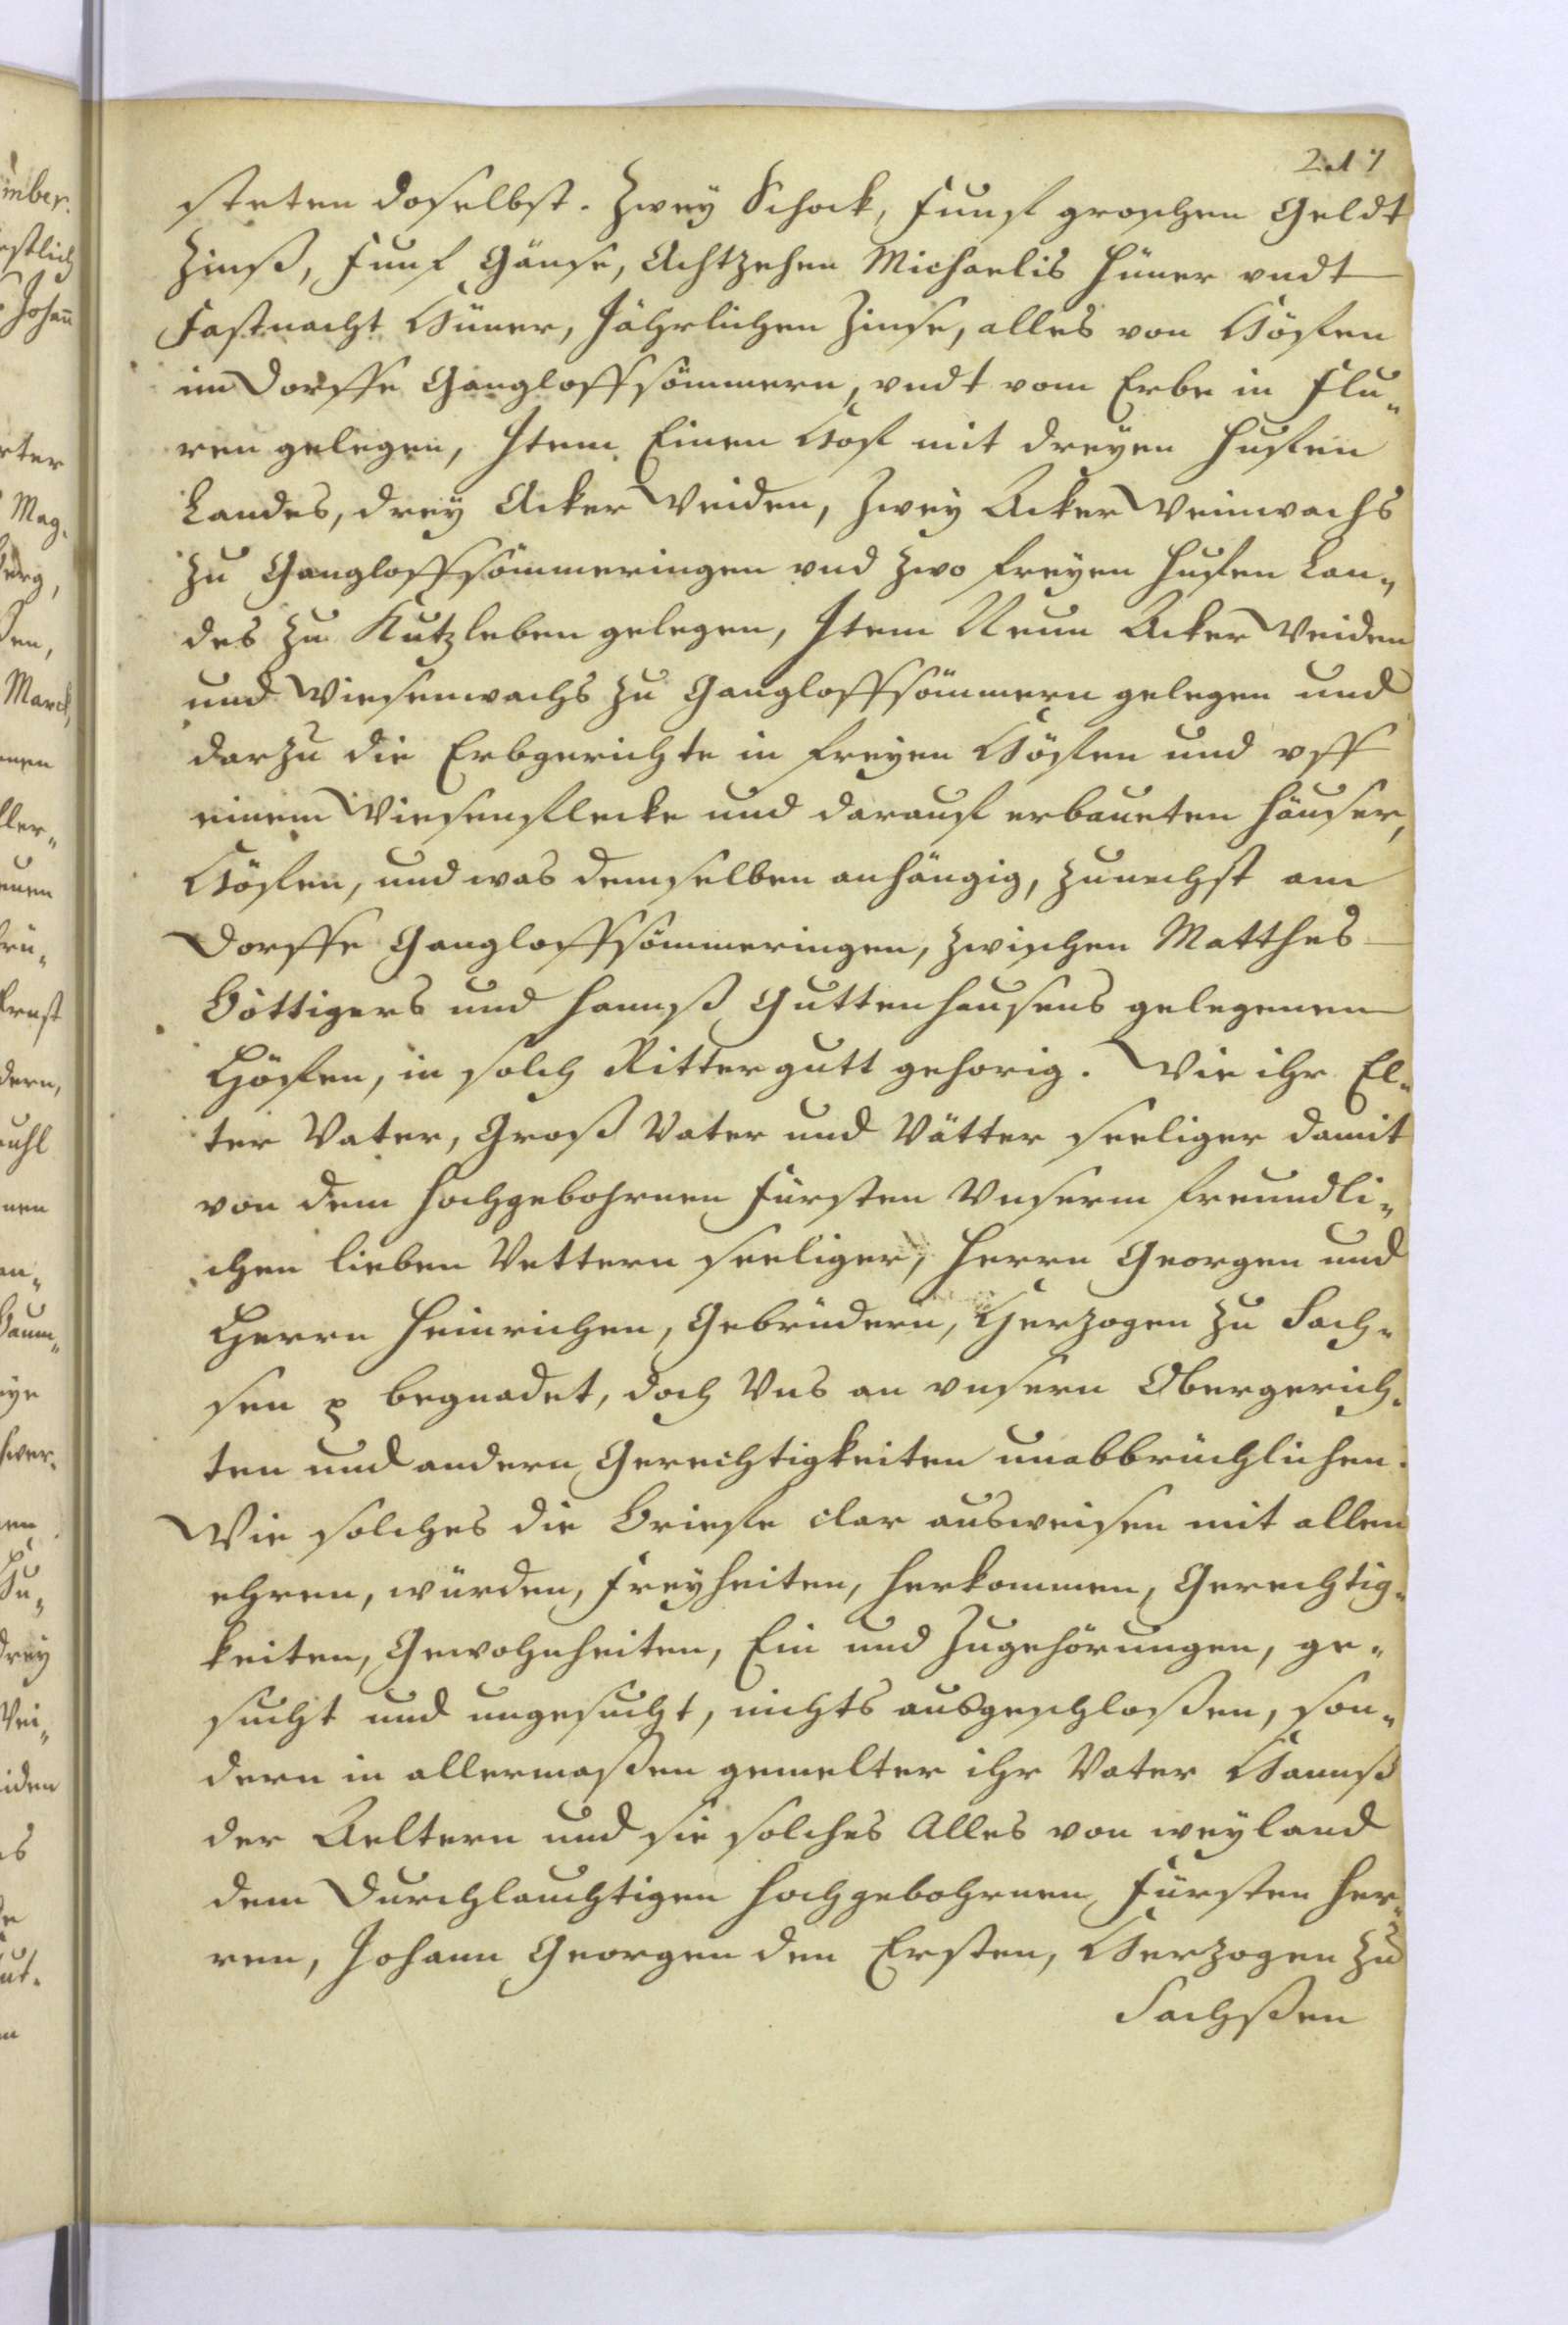 217
steten doselbst. Zwey Schock, funf groschen Geldt
Zinß, funf Gänse, Achtzehen Michaelis Hüner vndt
Fastnacht Hüner, Jährlichen Zinse, alles von Höfen
im Dorffe Gangloffsömmern, vndt vom Erbe in Flu„
ren gelegen, Item Einen Hof mit dreyen Hufen
Landes, drey Acker Weiden, Zwey Acker Weinwachs
zu Gangloffsömmeringen vnd zwo freyen Hufen Lan„
des zu Kutzleben gelegen, Item Neun Acker Weiden
und Wiesenwachs zu Gangloffsömmern gelegen und
darzu die Erbgerichte in freyen Höfen und vff
einem Wiesenflecke und darauf erbaueten Häuser,
Höfen, und was demselben anhängig, zunechst am
Dorffe Gangloffsömmeringen, zwischen Matthes
Böttigers und Hannß Guttenhausens gelegenen
Höfen, in solch Rittergutt gehorig. Wie ihr El„
ter Vater, Groß Vater und Vätter seeliger damit
von dem Hochgebohrnen Fürsten Vnserm freundli„
chen lieben Vettern seeliger, Herrn Georgen und
Herrn Heinrichen, Gebrüdern, Herzogen zu Sach„
sen p begnadet, doch Vns an vnsern Obergerich„
ten und andern Gerechtigkeiten unabbrüchlichen.
Wie solches die Briefe clar ausweisen mit allen
ehren, würden, Freyheiten, Herkommen, Gerechtig„
keiten, Gewohnheiten, Ein und Zugehörungen, ge„
sucht und ungesucht, nichts ausgeschloßen, son„
dern in allermaßen gemelter ihr Vater Hannß
der Aeltern und sie solches Alles von weyland
dem Durchlauchtigen Hochgebohrnen Fürsten Her„
ren, Johann Georgen den Ersten, Herzogen zu
Sachßen